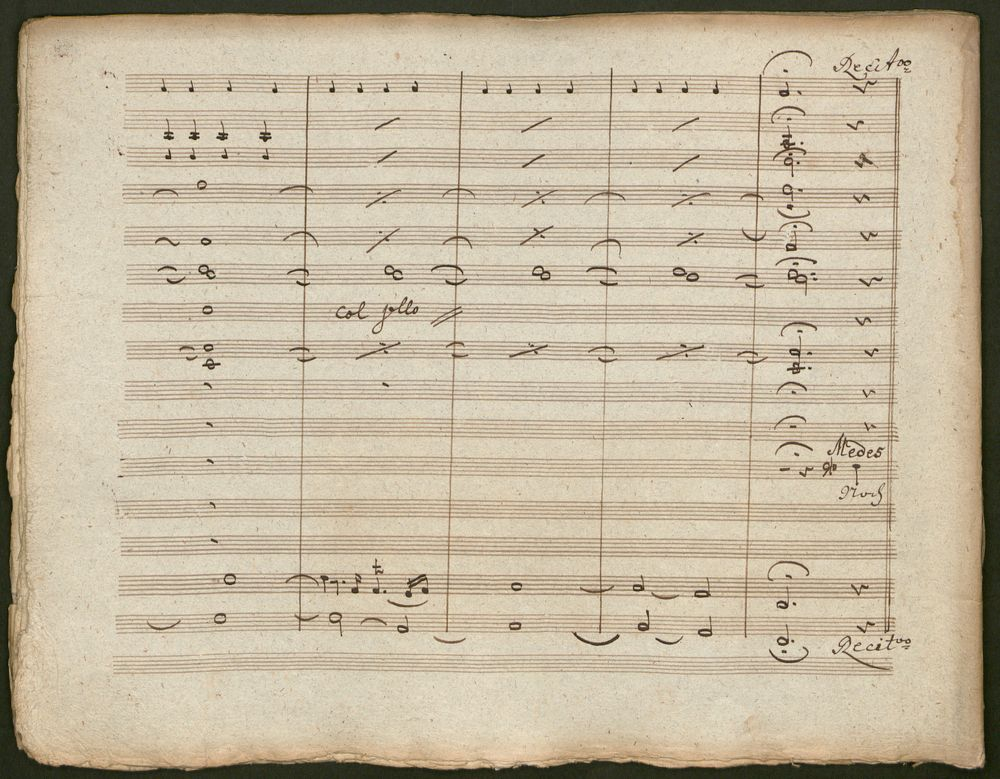 Recit.vo
col
Medes
Noch
Recit.vo